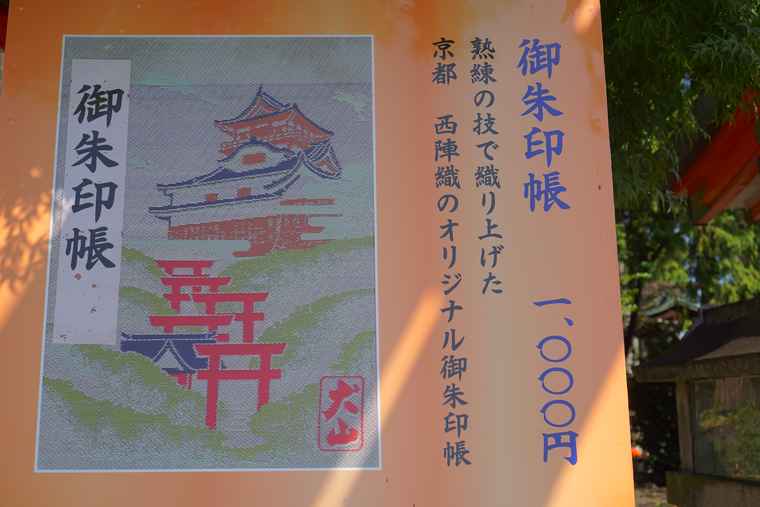 御朱印帳 一、〇〇〇円
熟練の技で織り上げた
京都 西陣織のオリジナル御朱印帳
御朱印帳
犬山